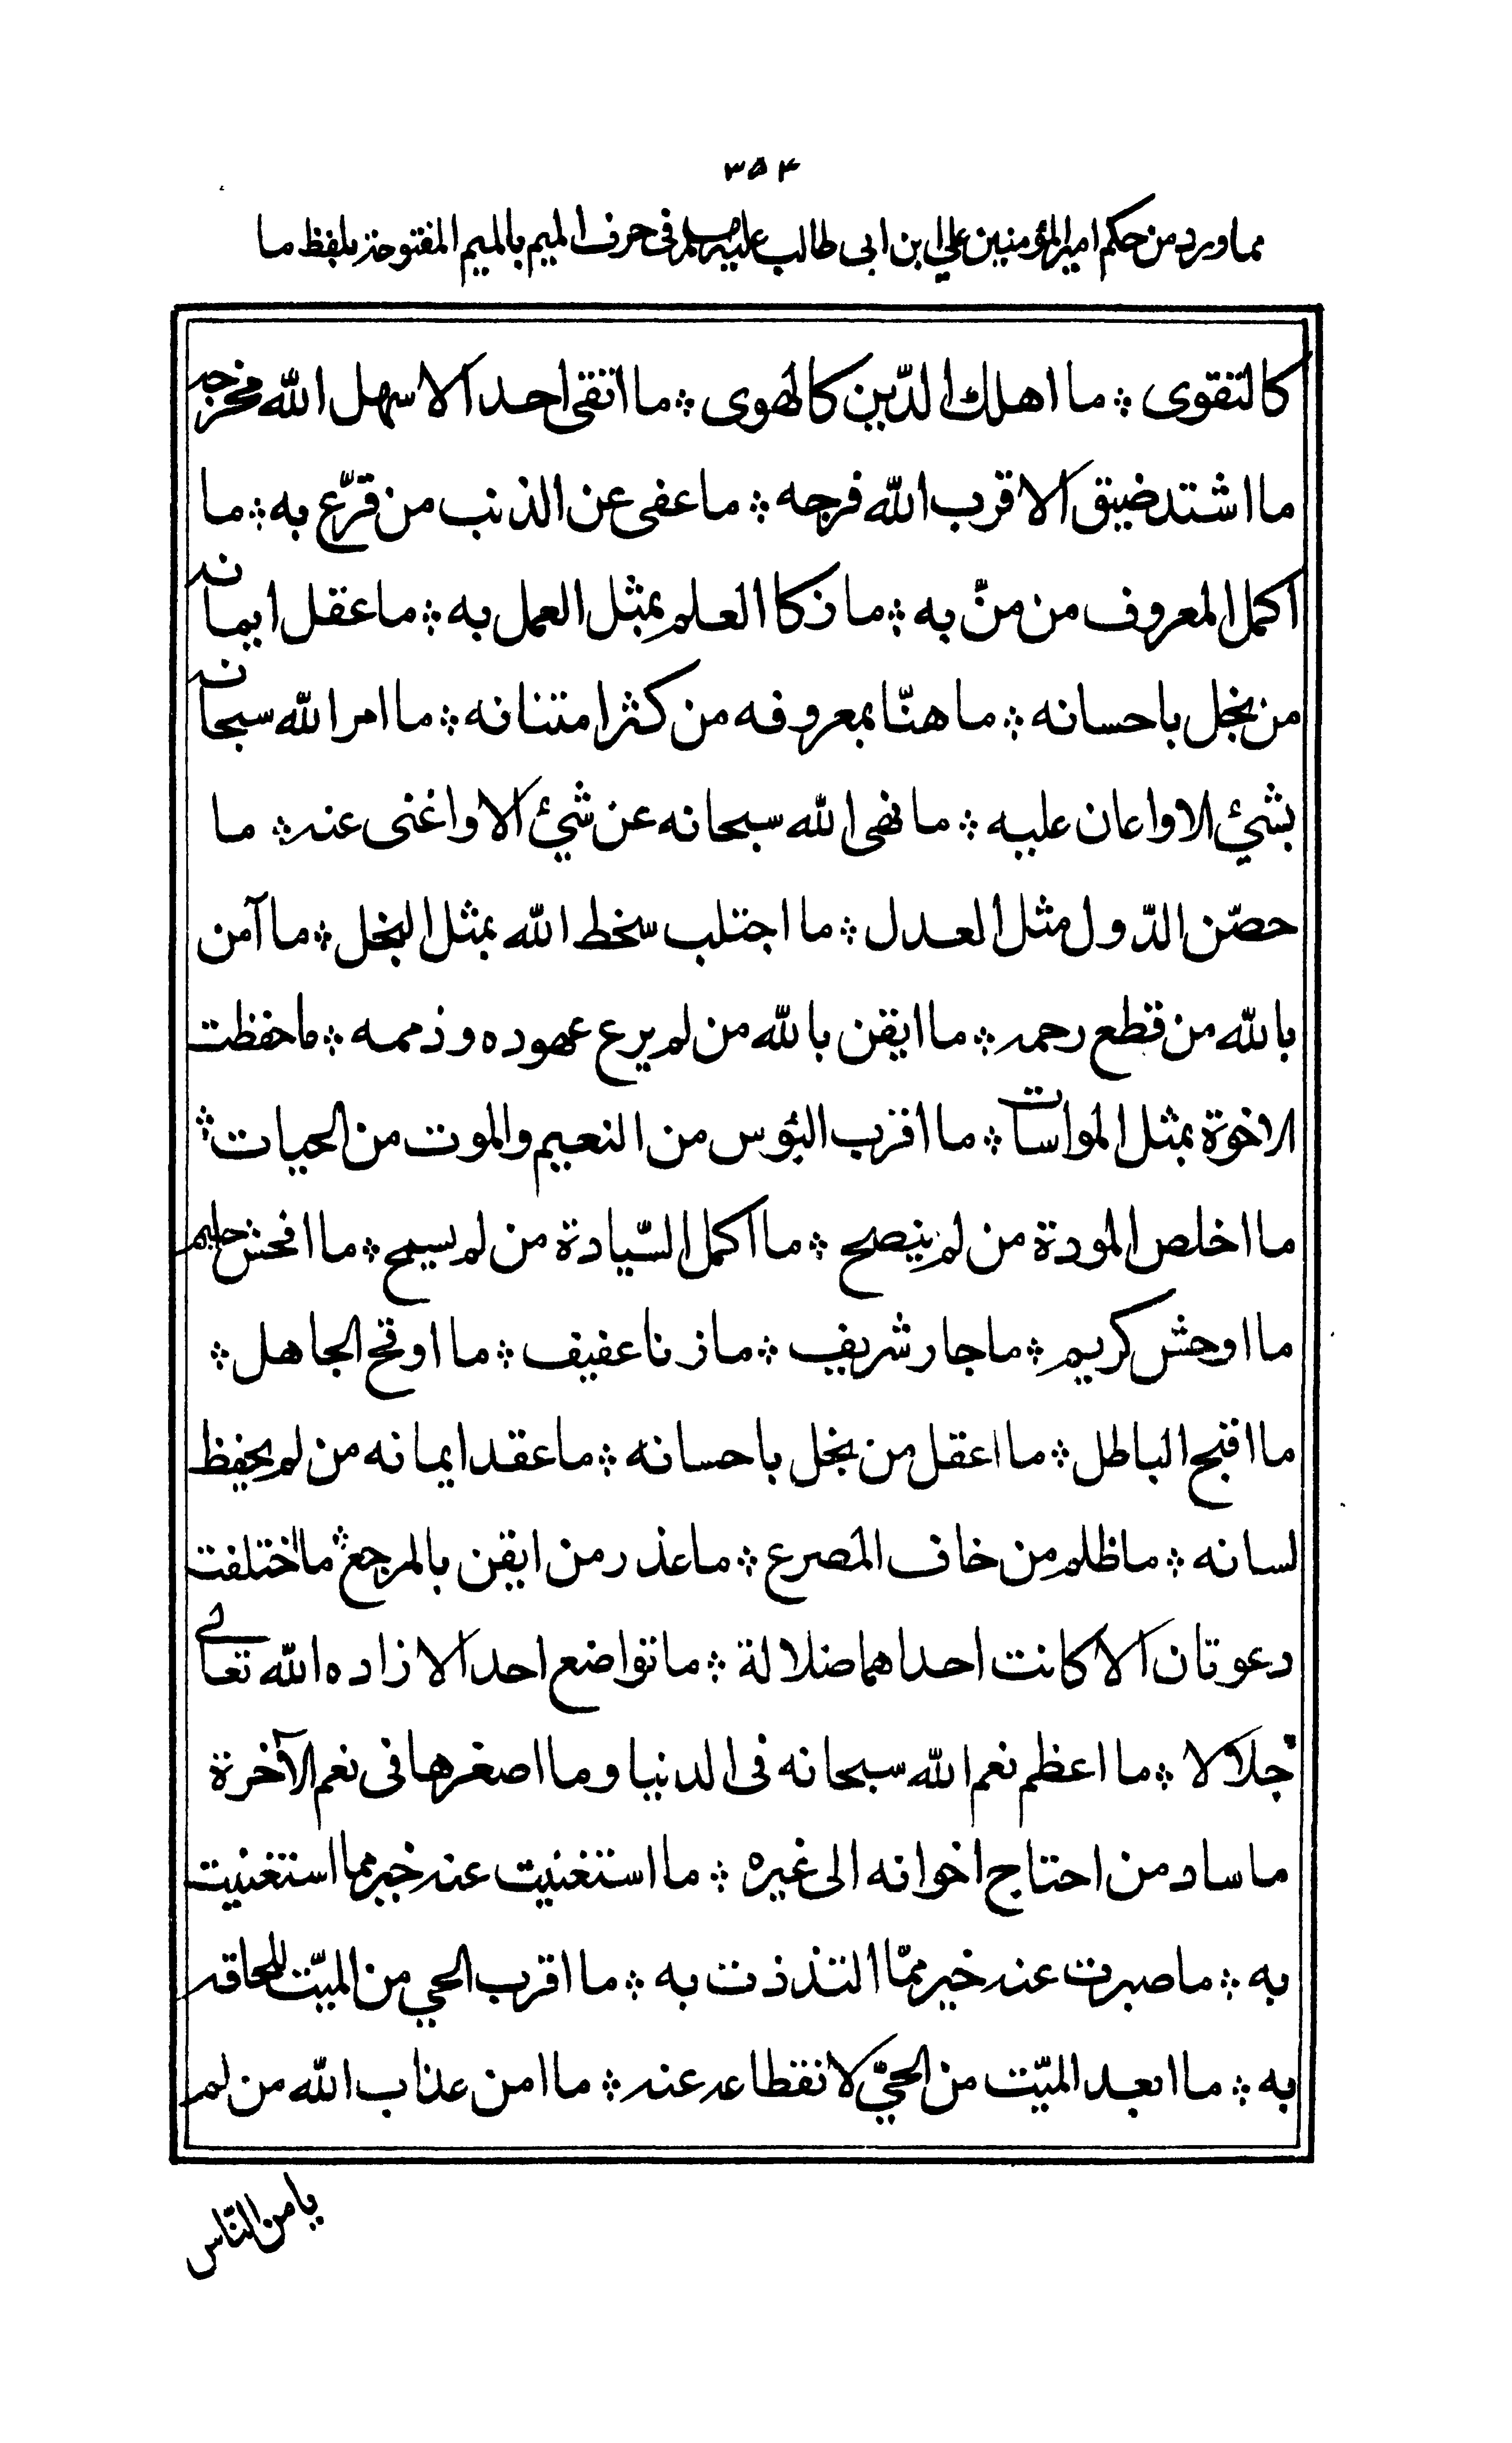 ۳۵۴
مماورد من حكم اميرالمؤمنين علي ابن ابى طالب عليه السلام فى حرف الميم بالميم المفتوحة بلفظ ما
كالتقوى ۞ ما اهلك الدّين كالهوى ۞ ما اتقى احد الا سهل الله مخرجه
ما اشتد ضيق الا قرب الله فرجه ۞ ما عفى عن الذنب من قرّع به ۞ ما
اكمل المعروف من منّ به ۞ ما زكا العلم بمثل العمل به ۞ ما عقل ايمانه
من بخل باحسانه ۞ ما هنّا بمعروفه من كثر امتنانه ۞ ما امر الله سبحانه
بشيئ الا واعان عليه ۞ ما نهى الله سبحانه عن شيئ الا واغنى عنه ۞ ما
حصّن الدّول مثل العدل ۞ ما اجتلب سخط الله بمثل البخل ۞ ما آمن
بالله من قطع رحمه ۞ ما ايقن بالله من لم يرع عهوده وذممه ۞ ما حفظت
الاخوة بمثل المواسات ۞ ما اقرب البؤس من النعيم والموت من الحيات ۞
ما اخلص المودة من لم ينصح ۞ ما اكمل السّيادة من لم يسمح ۞ ما افحش حليم
ما اوحش كريم ۞ ما جار شريف ۞ ما زنا عفيف ۞ ما اوقح الجاهل ۞
ما اقبح الباطل ۞ ما اعقل من بخل باحسانه ۞ ما عقد ايمانه من لم يحفظ
لسانه ۞ ما ظلم من خاف المصرع ۞ ما عذر من ايقن بالمرجع ۞ ما اختلفت
دعوتان الا كانت احداهما ضلالة ۞ ما تواضع احد الا زاده الله تعالى
جلالا ۞ ما اعظم نعم الله سبحانه فى الدنيا وما اصغرها فى نعم الآخرة
ما ساد من احتاج اخوانه الى غيره ۞ ما استغنيت عنه خير مما استغنيت
به ۞ ما صبرت عنه خير ممّا التذذت به ۞ ما اقرب الحي من الميّت للحاقه
به ۞ ما ابعد الميّت من الحيّ لانقطاعه عنه ۞ ما امن عذاب الله من لم
يامن النّاس